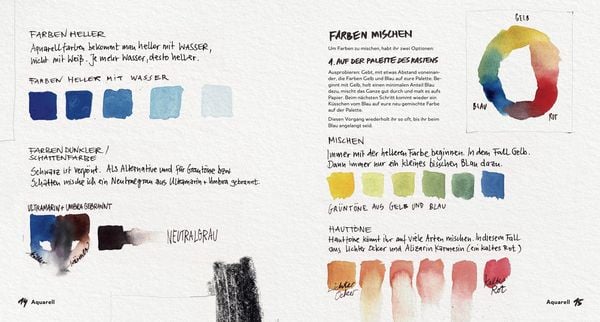 FARBEN HELLER
Aquarellfarben bekommt man heller mit WASSER,
nicht mit Weiß. Je mehr Wasser, desto heller.
FARBEN HELLER MIT WASSER
FARBEN DUNKLER/
SCHATTENFARBE
Schwarz ist verpönt. Als Alternative und für Grautöne bzw
Schatten mische ich ein Neutralgrau aus Ultramarin + Umbra gebrannt.
ULTRAMARIN + UMBRA GEBRANNT
NEUTRALGRAU
14 Aquarell
FARBEN MISCHEN
Um Farben zu mischen, habt ihr zwei Optionen:
1. AUF DER PALETTE DES KASTENS
Ausprobieren: Gebt, mit etwas Abstand voneinan-
der, die Farben Gelb und Blau auf eure Palette. Be-
ginnt mit Gelb, holt einen minimalen Anteil Blau
dazu, mischt das Ganze gut durch und malt es aufs
Papier. Beim nächsten Schritt kommt wieder ein
Küsschen vom Blau auf eure neu gemischte Farbe
auf der Palette.
Diesen Vorgang wiederholt ihr so oft, bis ihr beim
Blau angelangt seid.
GELB
BLAU
ROT
MISCHEN
Immer mit der helleren Farbe beginnen. In dem Fall Gelb.
Dann immer nur ein kleines bisschen Blau dazu.
GRÜNTÖNE AUS GELB UND BLAU
HAUTTÖNE
Hauttöne könnt ihr auf viele Arten mischen. In diesem Fall
aus Lichter Ocker und Alizarin Karmesin (ein kaltes Rot)
lichter
Ocker
kaltes
Rot
Aquarell 15